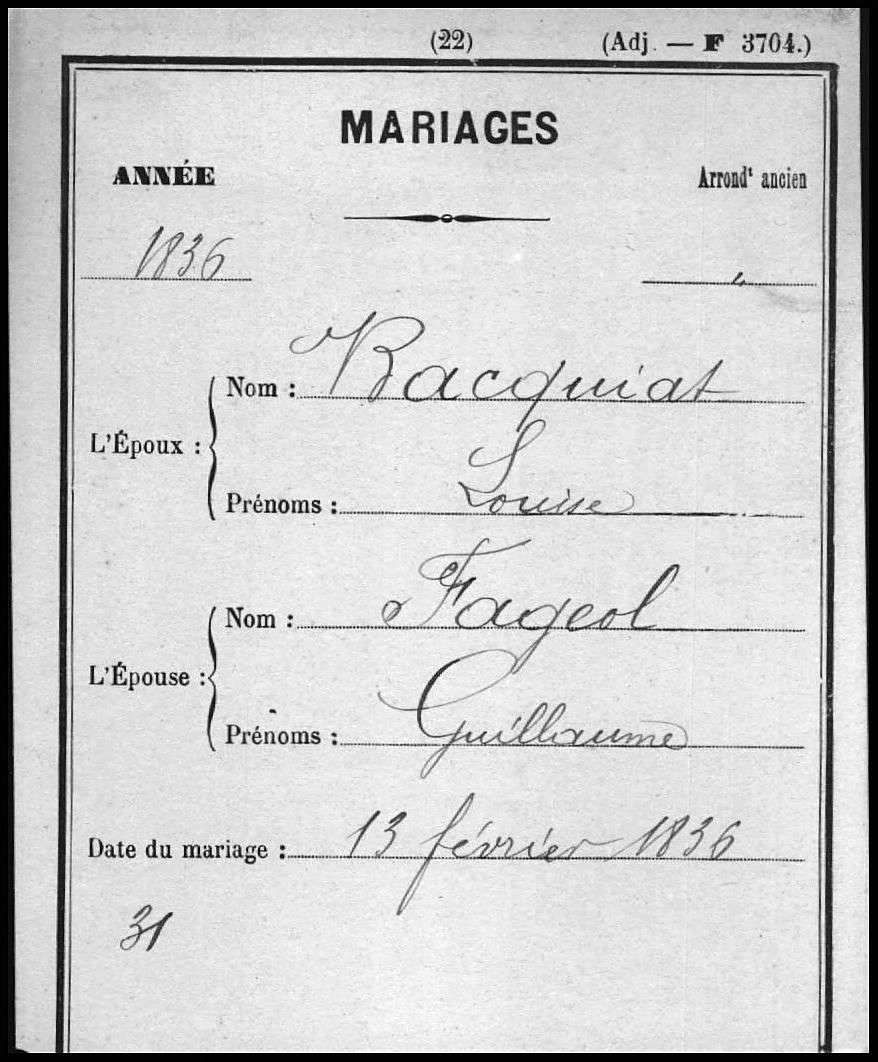 (22) (Adj. — F 3704.)
MARIAGES
ANNÉE Arrondt ancien
1836 "
L'Époux :
Nom : Bacquiat
Prénoms : Louise
L'Épouse :
Nom : Fageol
Prénoms : Guillaume
Date du mariage : 13 février 1836
31